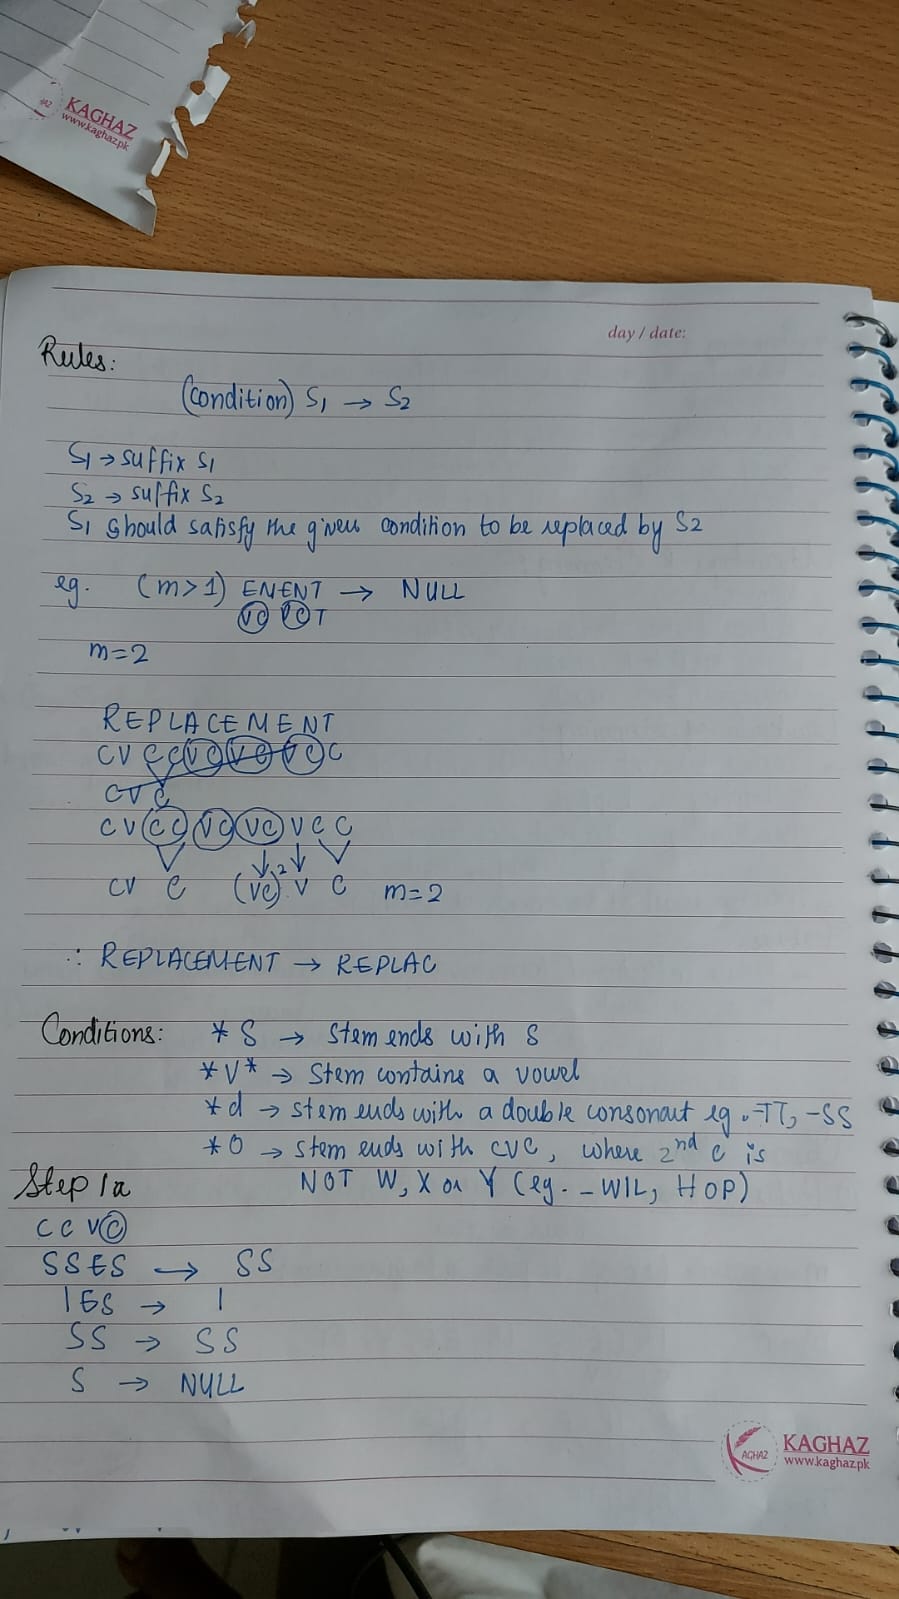 KAGHAZ
www.kaghaz.pk
day / date:
Rules:
(condition) S1 → S2
S1 → suffix S1
S2 → suffix S2
S1 should satisfy the given condition to be replaced by S2
eg. (m>1) EMENT → NULL
VC VC T
m=2
REPLACEMENT
CV CC VC VC VC C
CV C
CV CC VC VC V C C
CV C (VC)2 V C m=2
∴ REPLACEMENT → REPLAC
Conditions: * S → Stem ends with S
* V * → Stem contains a vowel
* d → stem ends with a double consonant eg. -TT, -SS
* O → stem ends with CVC, where 2nd C is
NOT W, X or Y (eg. -WIL, HOP)
Step 1a
C C V C
SSES → SS
IES → I
SS → SS
S → NULL
KAGHAZ
AGHAZ
www.kaghaz.pk